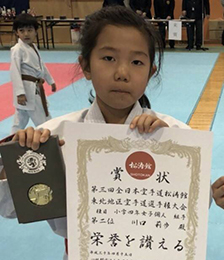 松濤館
賞状
第三回全日本空手道松涛館
東北地区空手道選手権大会
種目 小学四年女子個人 組手
第二位 川口 莉歩 殿
栄誉を讃える